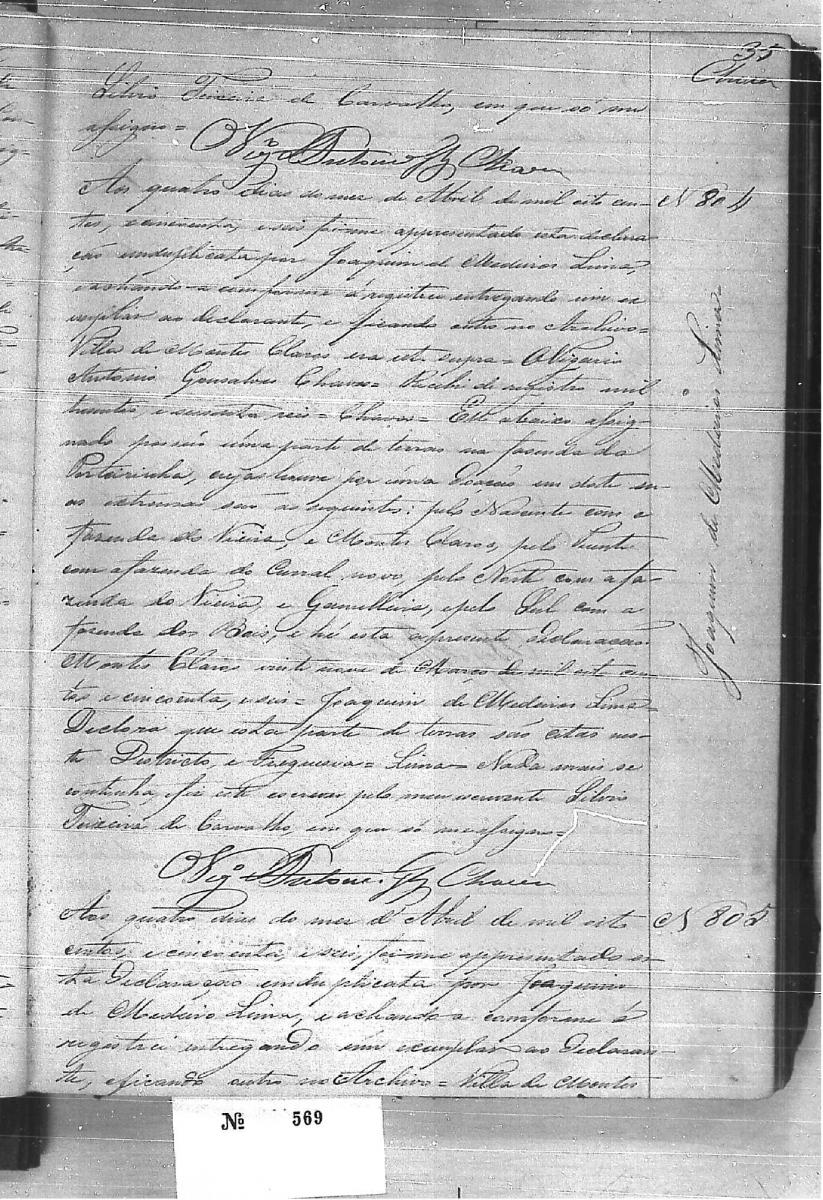 35
Chaves
Silvio Teixeira de Carvalho, em que só me
assigno=
Vigº Antonio Glz Chaves
Aos quatro dias do mez de Abril de mil oito cen-
tos, e cincoenta, e seis foi-me appresentado esta declara
ção em duplicata por Joaquim de Medeiros Lima,
e achando-a conforme á registrei entregando um ex
emplar ao declarante, e ficando outro no Archivo=
Villa de Montes Claros era est supra= O Vigario
Antonio Gonsalves Chaves= Recebi de registro mil
trinta, e sessenta reis= Chaves= Eu abaixo assig-
nado possúo uma parte de terras na fasenda da
Porteirinha, cujas houve por uma doação em dote su-
as extremas são as seguintes: pelo Nascente com a
fazenda do Vieira, e Montes Claros, pelo Puente
com a fazenda do Curral novo, pelo Norte com a fa-
zenda do Vieira, e Gamelleira, e pelo Sul com a
fazenda dos Bois, e hé esta a presente declaração
Montes Claros vinte nove de Março de mil oito cen-
tos e cincoenta, e seis= Joaquim de Medeiros Lima=
Declara que esta parte de terras são citas nes-
te Districto, e Freguesia= Lima= Nada mais se
continha, fiz este escrever pelo meu escrevente Silvio
Teixeira de Carvalho, em que só me assigno=
Vigº Antonio Glz Chaves
Nº 804
Joaquim de Medeiros Lima
Aos quatro dias do mez d'Abril de mil oito
centos, e cincoenta, e seis, foi-me appresentado es-
ta Declaração em duplicata por Joaquim
de Medeiro Lima, e achando a conforme á
registrei entregando um exemplar ao Declaran-
te, e ficando outro no Archivo= Villa de Montes
Nº 805
Nº 569